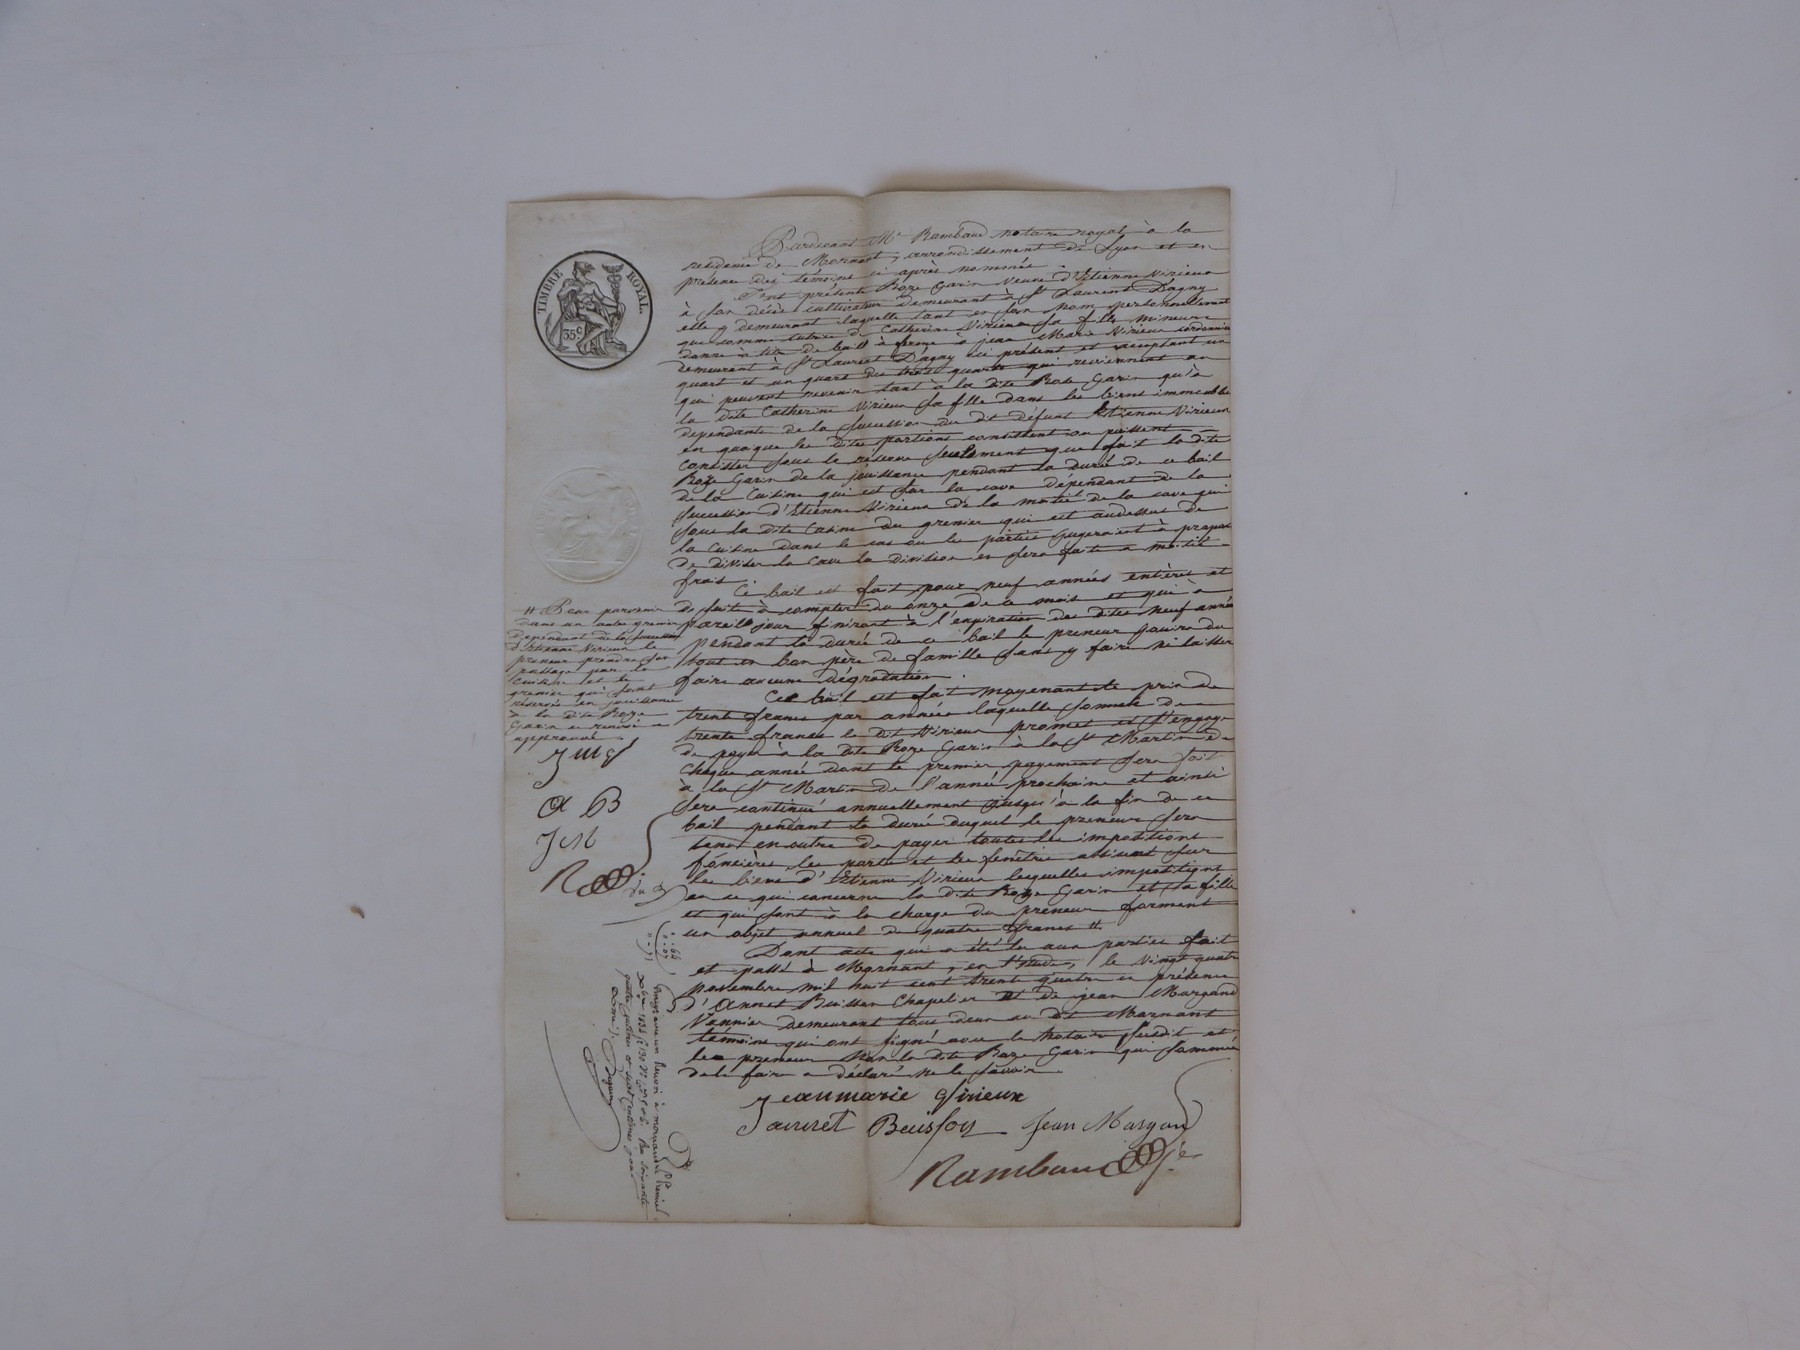 TIMBRE ROYAL
35 c
Pardevant Me Rambaud notaire royal à la
residence de Mornant, arrondissement de Lyon et en
présence des témoins ci après nommés.
Fut présente Roze Garin veuve d'Etienne Virieux
à son décès cultivateur demeurant à St Laurent Dagny
elle y demeurant laquelle tant en son nom personnellement
que comme tutrice de Catherine Virieux sa fille mineure
donne à titre de bail à ferme à jean Marie Virieux cordonnier
demeurant à St Laurent D'agny ici présent et acceptant un
quart et un quart des trois quarts qui reviennent ou
qui peuvent revenir tant à la dite Roze Garin qu'à
la dite Catherine Virieux sa fille dans les biens immeubles
dependants de la succession du dit défunt Etienne Virieux
en quoique les dites portions consistent ou puissent
consister sous la réserve seulement que fait la dite
Roze Garin de la jouissance pendant la durée de ce bail
de la Cuisine qui est sur la cave dépendant de la
succession d'Etienne Virieux de la moitié de la cave qui
sous la dite Cuisine du grenier qui est audessus de
la Cuisine dans le cas ou les parties jugeraient à propos
de diviser la cave la division en sera faite a moitié
frais.
Ce bail est fait pour neuf années entières et
de suite à compter du onze de ce mois et qui à
pareil jour finiront à l'expiration des dites neuf années
pendant la durée de ce bail le preneur jouira du
tout en bon père de famille sans y faire ni laisser
faire aucune dégradation.
Ce bail est fait moyenant le prix de
trente francs par année laquelle somme de
trente francs le dit Virieux promet et s'engage
de payer à la dite Roze Garin à la St Martin de
chaque année dont le premier payement sera fait
à la St Martin de l'année prochaine et ainsi
sera continué annuellement jusqu'à la fin de ce
bail pendant la durée duquel le preneur sera
tenu en outre de payer toutes les impositions
foncières, les portes et les fenêtres assises sur
les biens d'Etienne Virieux lesquelles impositions
en ce qui concerne la dite Roze Garin et sa fille
et qui sont à la charge du preneur forment
un objet annuel de quatre francs #.
Dont acte qui a été lu aux parties fait
et passé à Mornant, en l'étude, le vingt quatre
novembre mil huit cent trente quatre en présence
d'Annet Buisson Chapelier et de jean Margand
Vannier demeurant tous deux au dit Mornant
témoins qui ont signé avec le Notaire susdit et
le preneur non la dite Roze Garin qui sommée
de le faire a déclaré ne le savoir.
# Pour parvenir
dans un autre grenier
dependant de la succession
d'Etienne Virieux le
preneur prendra son
passage par la
cuisine et le
grenier qui sont
réservés en jouissance
à la dite Roze
Garin ce renvoi
approuvé
JMV
a B
JM
R
Jeanmarie Virieux
Buisson Jean Margand
Rambaud